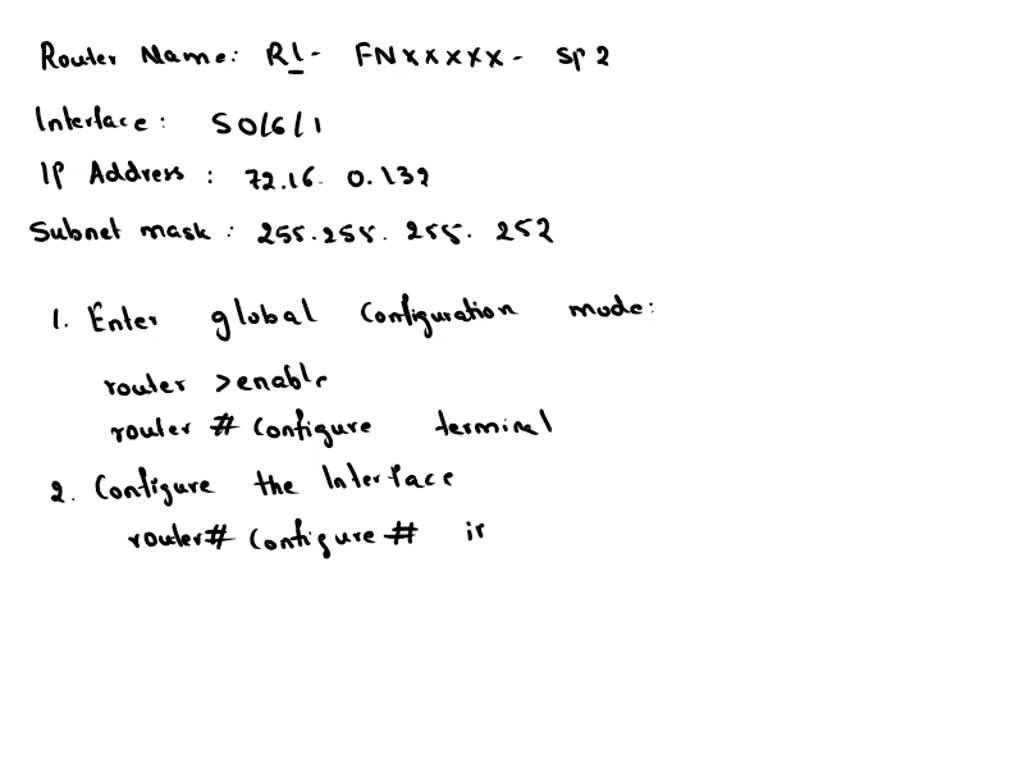 Router Name: R1- FNXXXXX- SP2
Interface: S0/6/1
IP Address : 72.16. 0.132
Subnet mask : 255.255. 255. 252
1. Enter global Configuration mode:
router >enable
router # Configure terminal
2. Configure the Interface
router# Configure# in